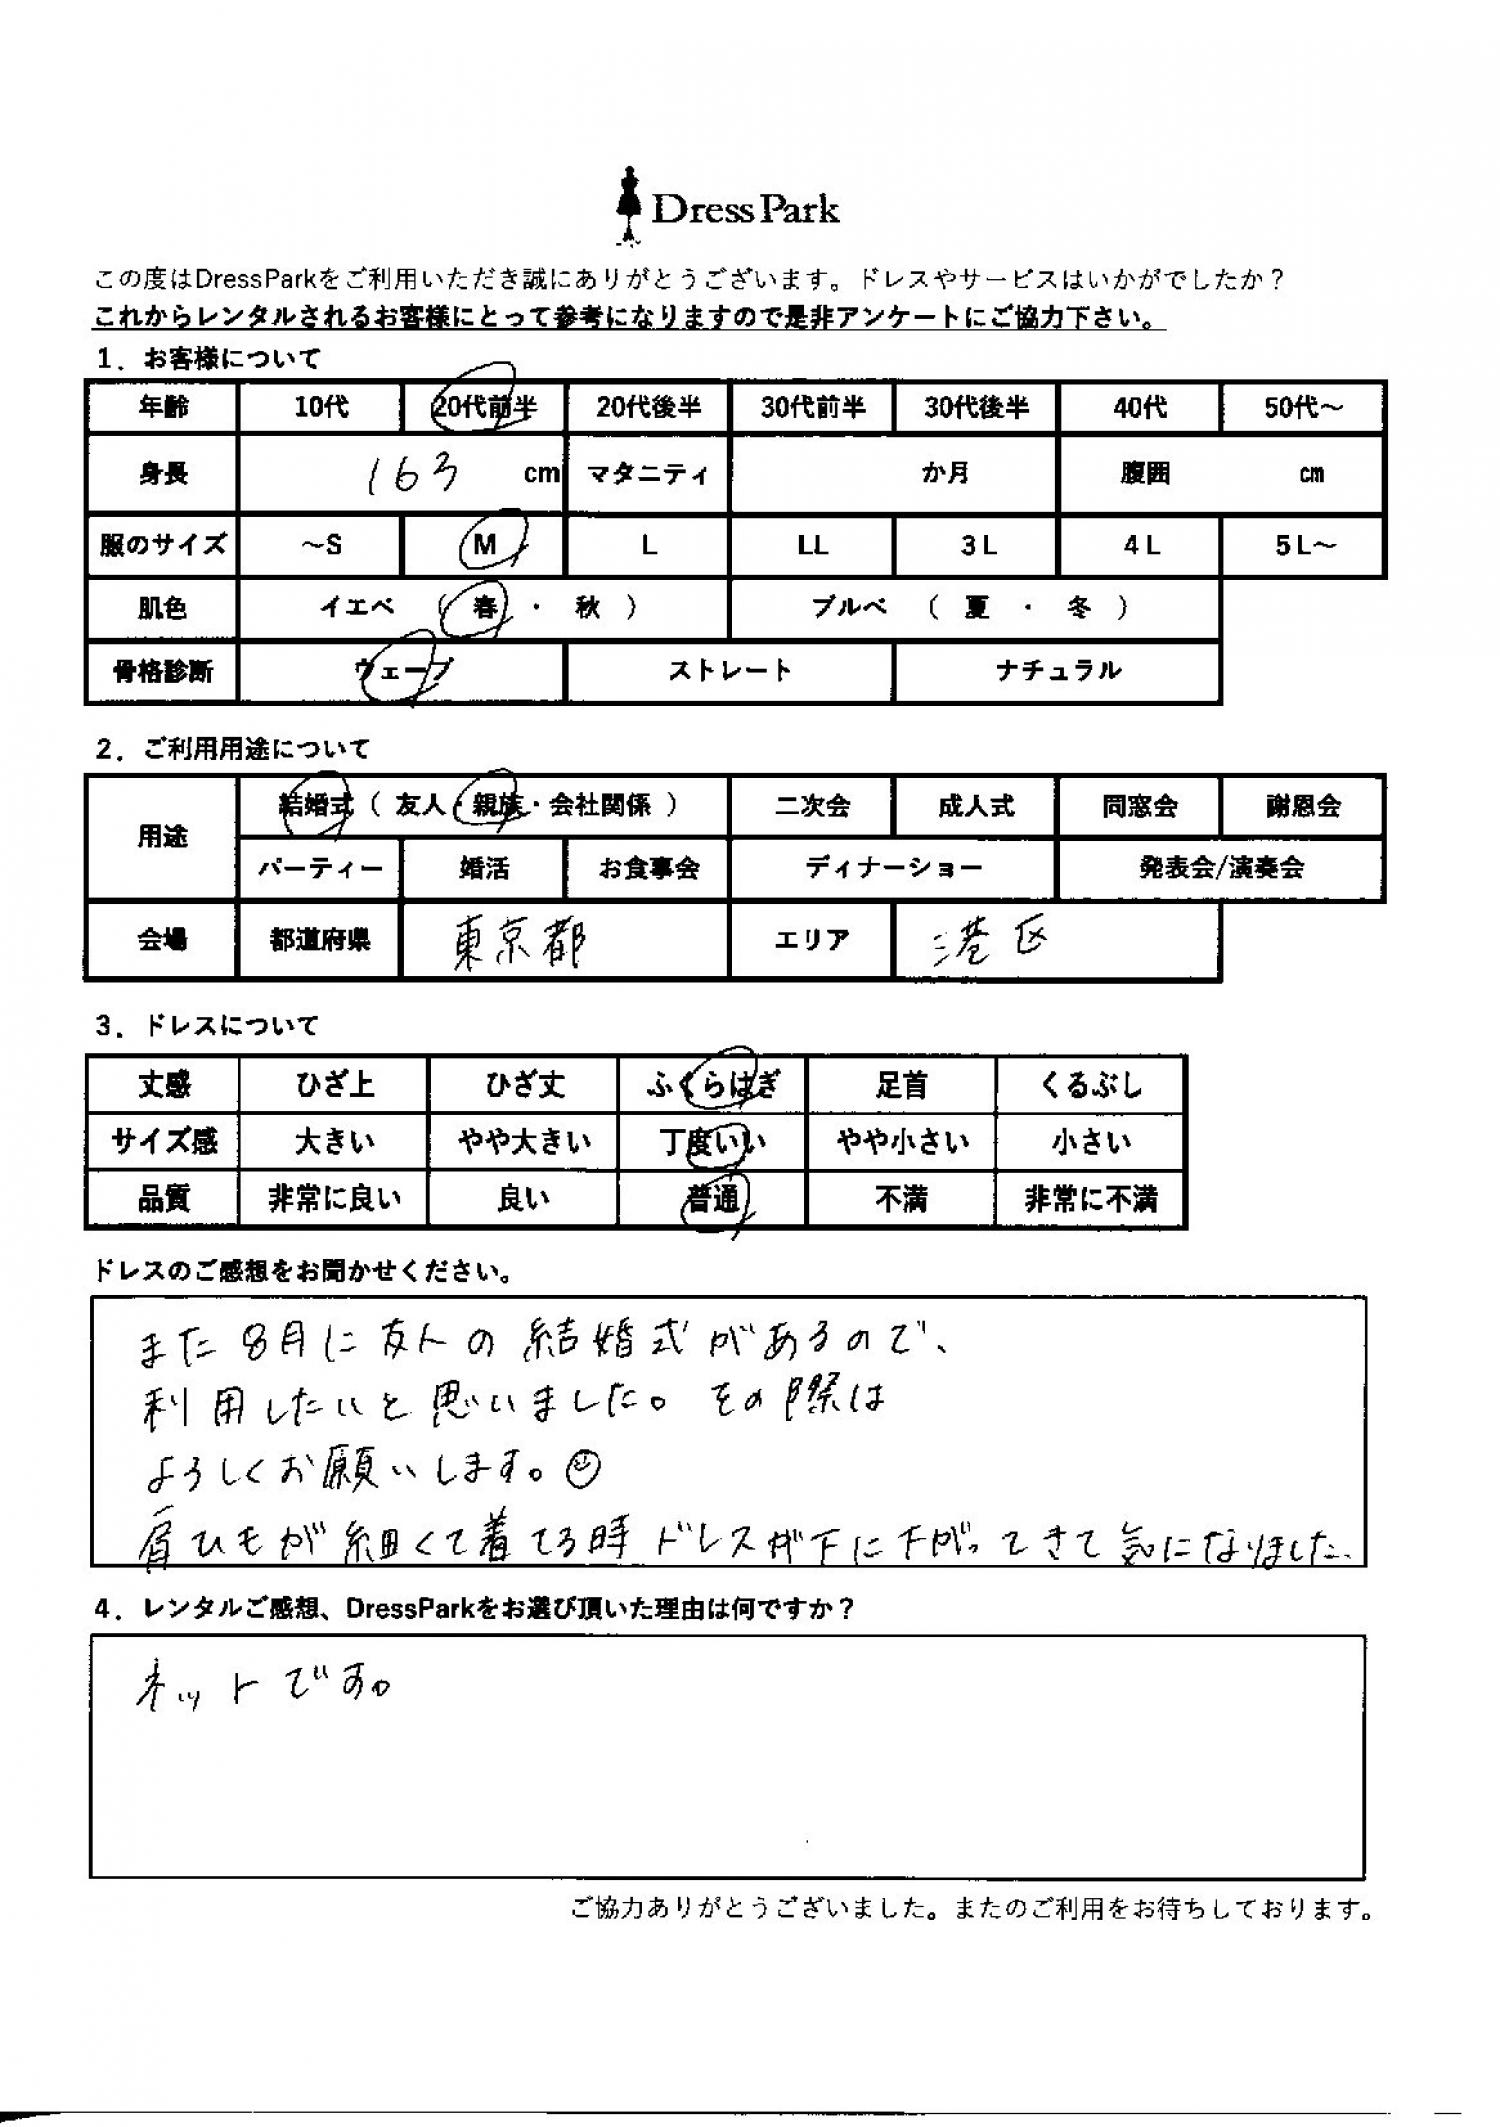 DressPark
この度はDressParkをご利用いただき誠にありがとうございます。ドレスやサービスはいかがでしたか？
これからレンタルされるお客様にとって参考になりますので是非アンケートにご協力下さい。
1．お客様について
年齢 10代 20代前半 20代後半 30代前半 30代後半 40代 50代～
身長 163 cm マタニティ か月 腹囲 cm
服のサイズ ～S M L LL 3L 4L 5L～
肌色 イエベ （ 春 ・ 秋 ） ブルベ （ 夏 ・ 冬 ）
骨格診断 ウェーブ ストレート ナチュラル
2．ご利用用途について
用途 結婚式（ 友人・親族・会社関係 ） 二次会 成人式 同窓会 謝恩会
パーティー 婚活 お食事会 ディナーショー 発表会/演奏会
会場 都道府県 東京都 エリア 港区
3．ドレスについて
丈感 ひざ上 ひざ丈 ふくらはぎ 足首 くるぶし
サイズ感 大きい やや大きい 丁度いい やや小さい 小さい
品質 非常に良い 良い 普通 不満 非常に不満
ドレスのご感想をお聞かせください。
また8月に友人の結婚式があるので、
利用したいと思いました。その際は
よろしくお願いします。☺
肩ひもが細くて着てる時ドレスが下に下がってきて気になりました。
4．レンタルご感想、DressParkをお選び頂いた理由は何ですか？
ネットです。
ご協力ありがとうございました。またのご利用をお待ちしております。